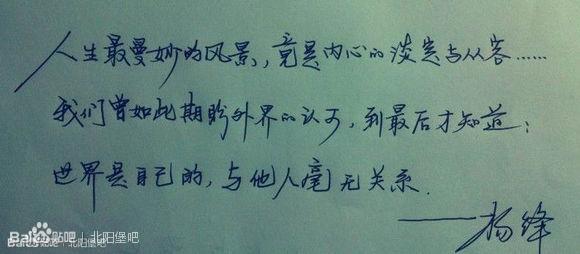 人生最曼妙的风景，竟是内心的淡定与从容……
我们曾如此期盼外界的认可，到最后才知道：
世界是自己的，与他人毫无关系.
——杨绛
Bai贴吧 | 北阳堡吧